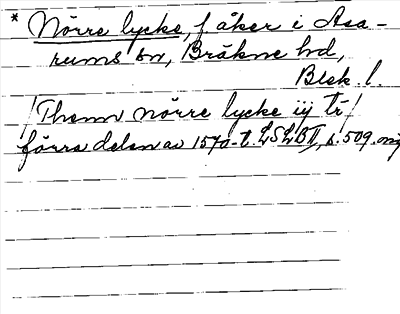 * Nörre lycke, f. åker i Asa-
rums sn, Bräkne hd,
Blek. l.
/Thenn nörre lycke iij tr/
förra delen av 1570-t. LSLBII, s. 509. orig